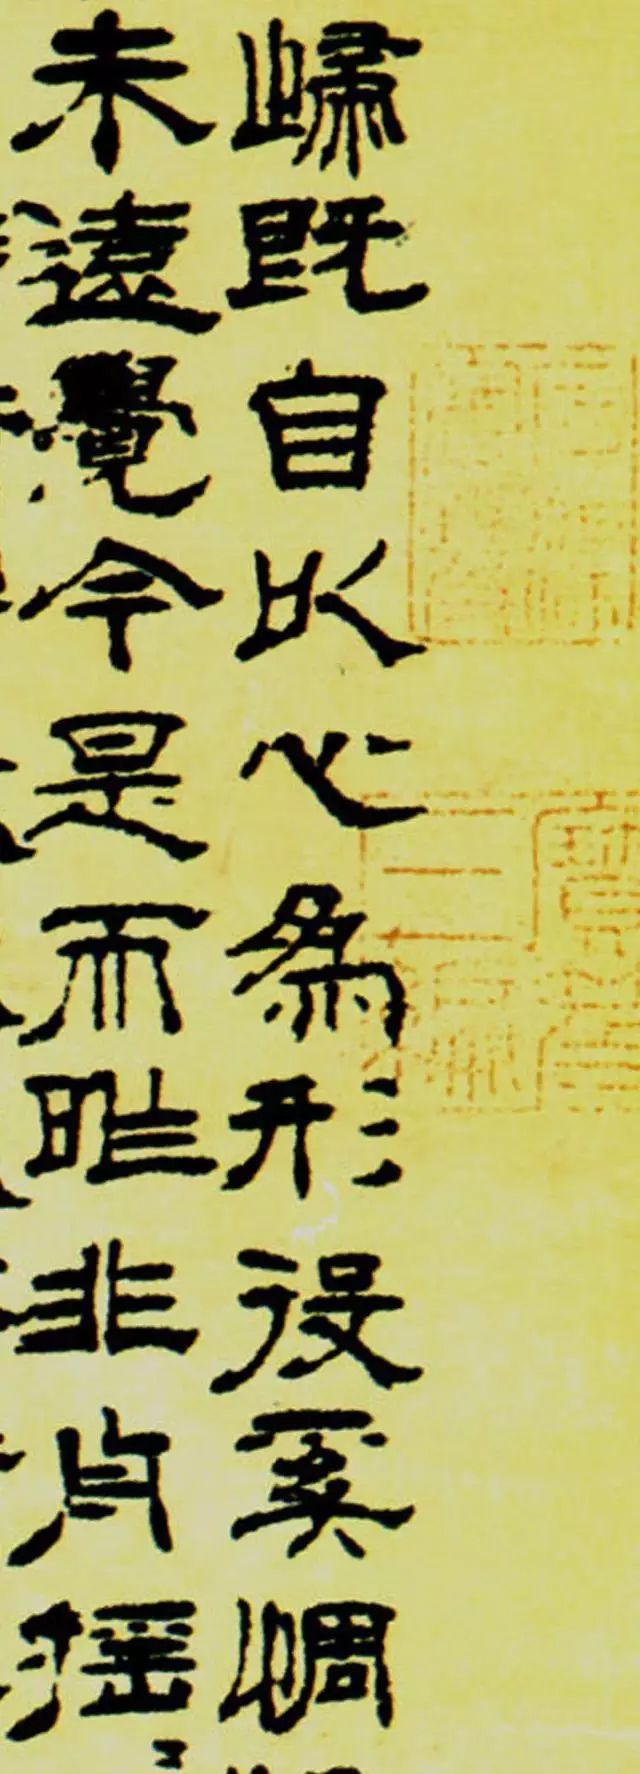 歸既自以心爲形役奚惆
未遠覺今是而昨非舟搖〻